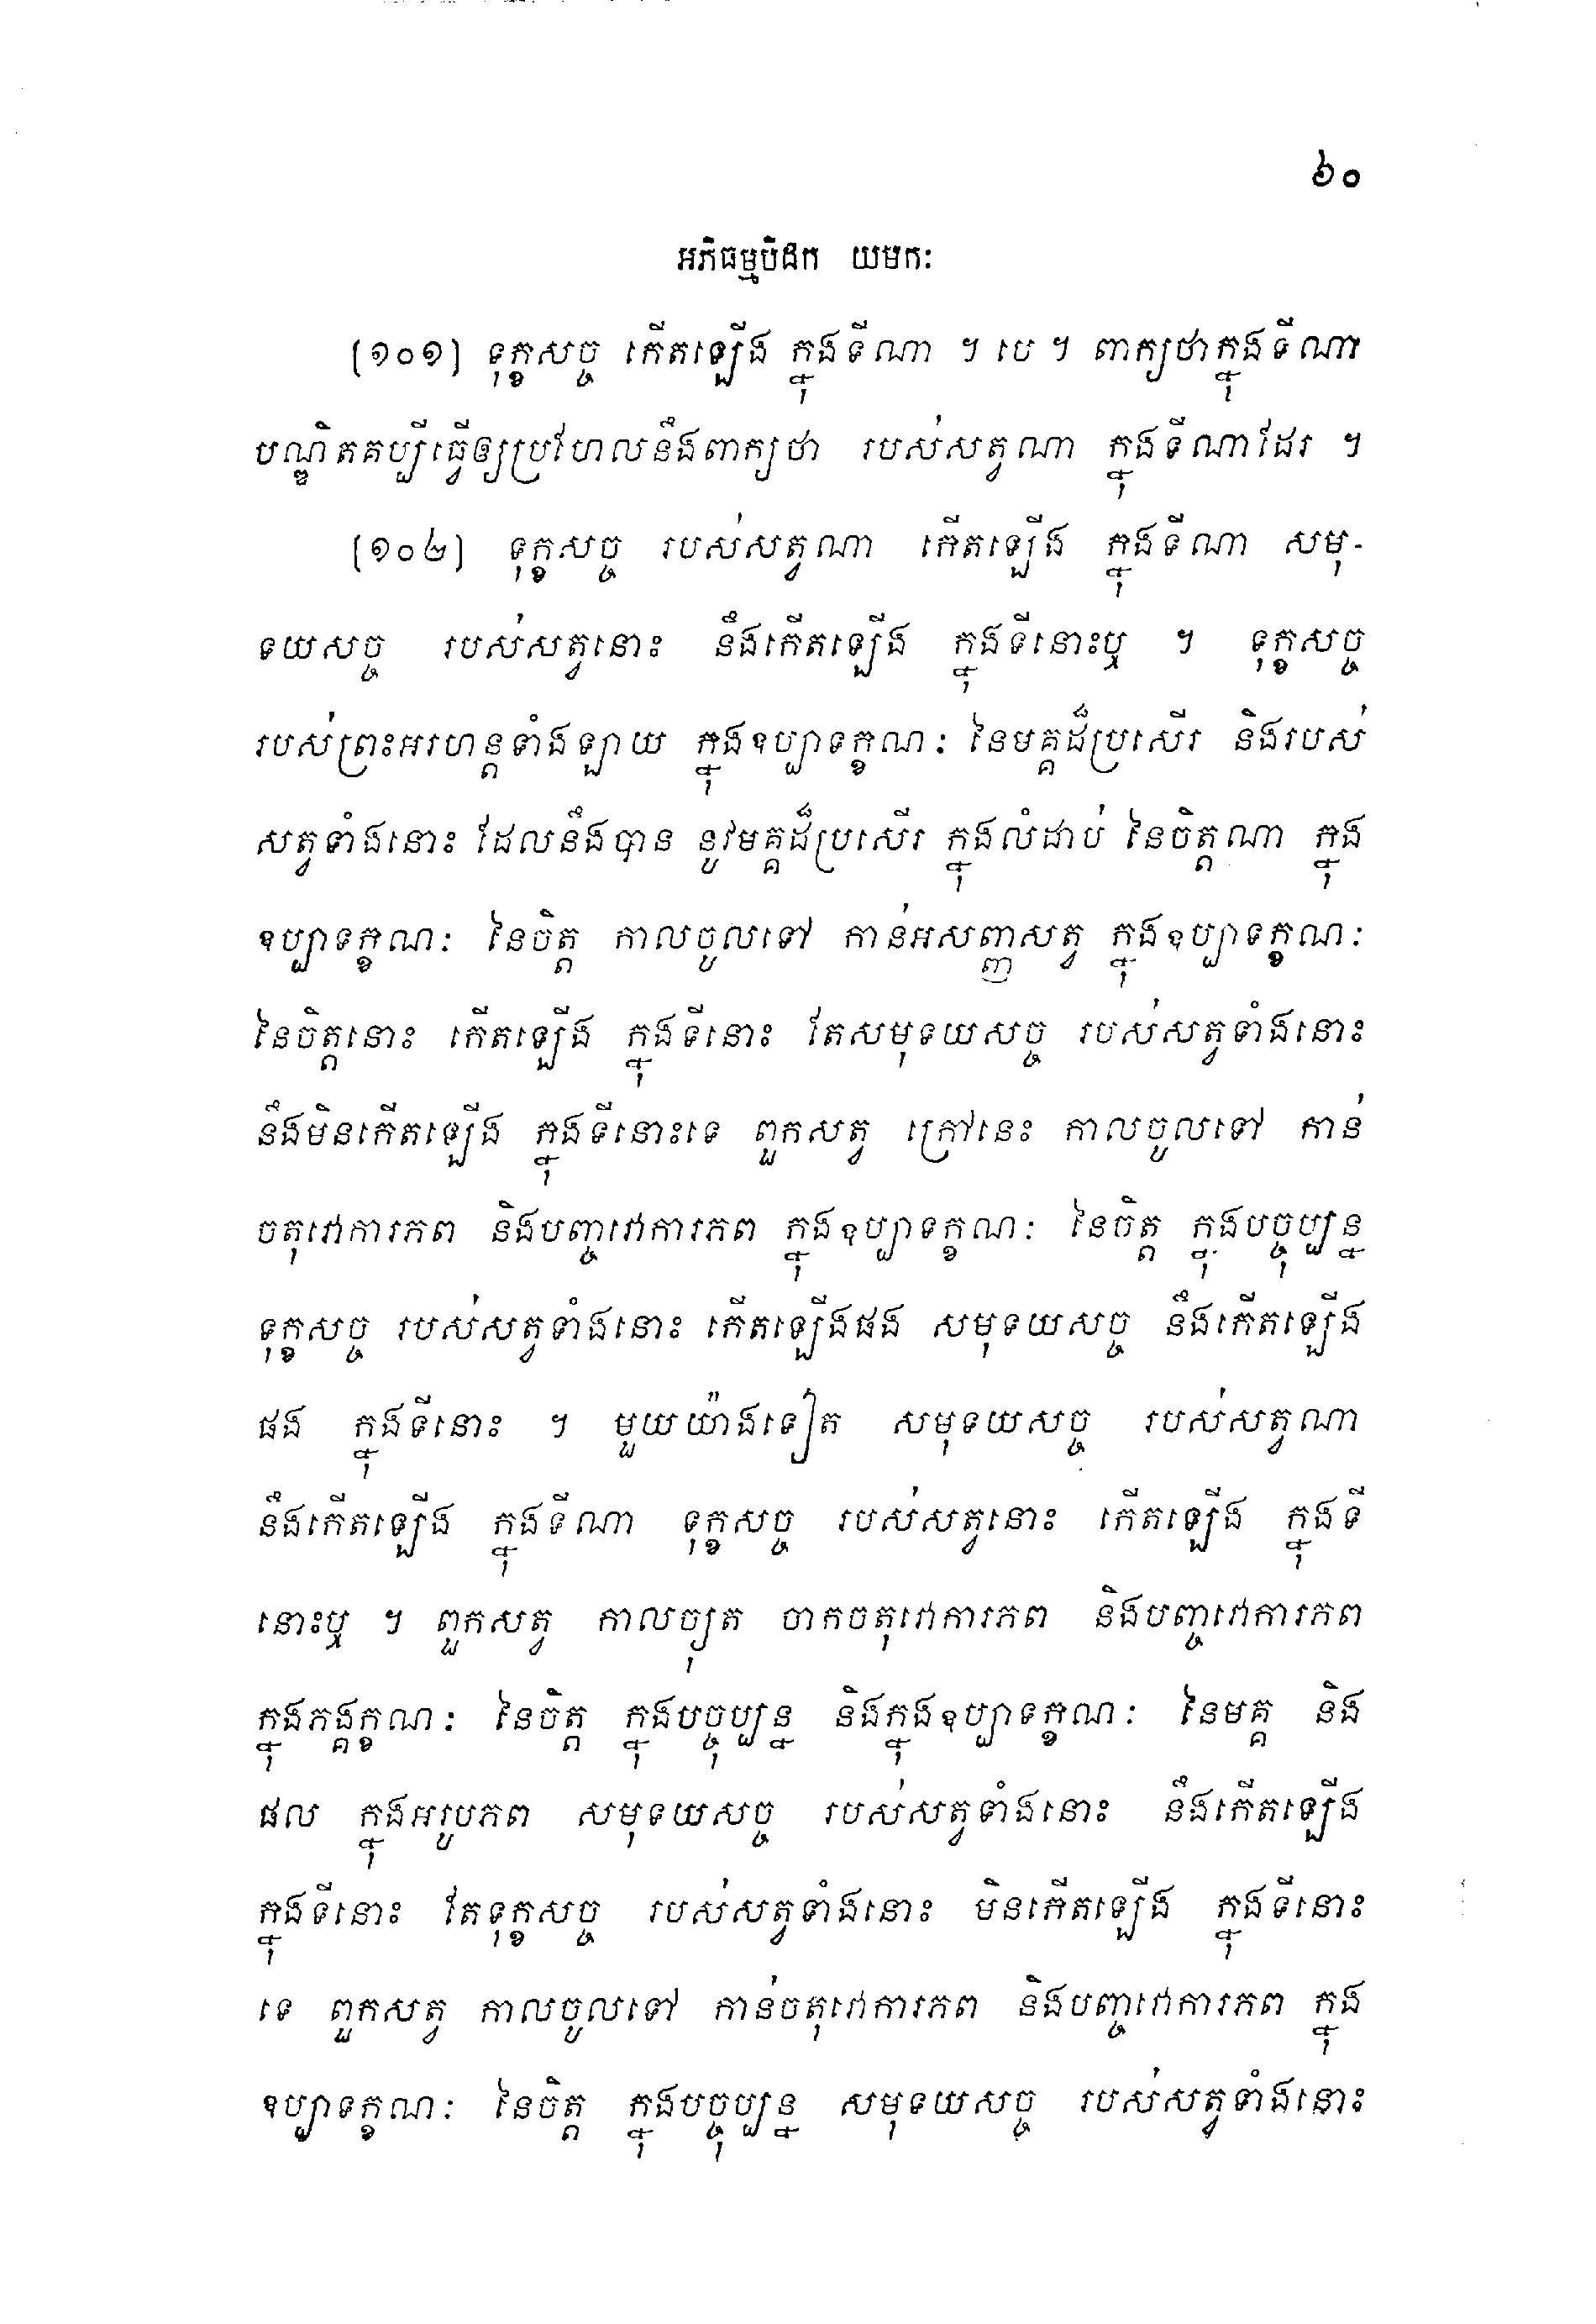 ៦០
អភិធម្មបិដក យមកៈ
[១០១] ទុក្ខសច្ច កើតឡើង ក្នុងទីណា ។ បេ ។ ពាក្យថាក្នុងទីណា
បណ្ឌិតគប្បីធ្វើឲ្យប្រហែលនឹងពាក្យថា របស់សត្វណា ក្នុងទីណាដែរ ។
[១០២] ទុក្ខសច្ច របស់សត្វណា កើតឡើង ក្នុងទីណា សមុ-
ទយសច្ច របស់សត្វនោះ នឹងកើតឡើង ក្នុងទីនោះឬ ។ ទុក្ខសច្ច
របស់ព្រះអរហន្តទាំងឡាយ ក្នុងឧប្បាទក្ខណៈ នៃមគ្គដ៏ប្រសើរ និងរបស់
សត្វទាំងនោះ ដែលនឹងបាន នូវមគ្គដ៏ប្រសើរ ក្នុងលំដាប់ នៃចិត្តណា ក្នុង
ឧប្បាទក្ខណៈ នៃចិត្ត កាលចូលទៅ កាន់អសញ្ញសត្វ ក្នុងឧប្បាទក្ខណៈ
នៃចិត្តនោះ កើតឡើង ក្នុងទីនោះ តែសមុទយសច្ច របស់សត្វទាំងនោះ
នឹងមិនកើតឡើង ក្នុងទីនោះទេ ពួកសត្វ ក្រៅនេះ កាលចូលទៅ កាន់
ចតុវោការភព និងបញ្ចវោការភព ក្នុងឧប្បាទក្ខណៈ នៃចិត្ត ក្នុងបច្ចុប្បន្ន
ទុក្ខសច្ច របស់សត្វទាំងនោះ កើតឡើងផង សមុទយសច្ច នឹងកើតឡើង
ផង ក្នុងទីនោះ ។ មួយយ៉ាងទៀត សមុទយសច្ច របស់សត្វណា
នឹងកើតឡើង ក្នុងទីណា ទុក្ខសច្ច របស់សត្វនោះ កើតឡើង ក្នុងទី
នោះឬ ។ ពួកសត្វ កាលច្យុត ចាកចតុវោការភព និងបញ្ចវោការភព
ក្នុងភង្គក្ខណៈ នៃចិត្ត ក្នុងបច្ចុប្បន្ន និងក្នុងឧប្បាទក្ខណៈ នៃមគ្គ និង
ផល ក្នុងអរូបភព សមុទយសច្ច របស់សត្វទាំងនោះ នឹងកើតឡើង
ក្នុងទីនោះ តែទុក្ខសច្ច របស់សត្វទាំងនោះ មិនកើតឡើង ក្នុងទីនោះ
ទេ ពួកសត្វ កាលចូលទៅ កាន់ចតុវោការភព និងបញ្ចវោការភព ក្នុង
ឧប្បាទក្ខណៈ នៃចិត្ត ក្នុងបច្ចុប្បន្ន សមុទយសច្ច របស់សត្វទាំងនោះ